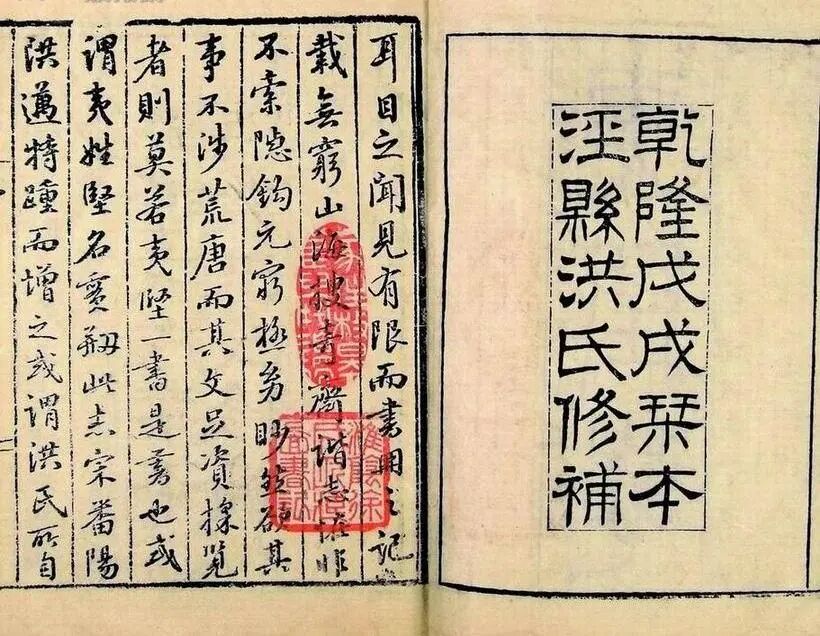 乾隆戊戌栞本
涇縣洪氏修補
耳目之聞見有限而書冊之記
載無窮山海搜奇齊諧志恠非
不索隱鈎元窮極眇然欲其
事不涉荒唐而其文足資採覽
者則莫若夷堅一書是書也或
謂夷姓堅名實剏此志宋番陽
洪邁特踵而增之或謂洪氏所自